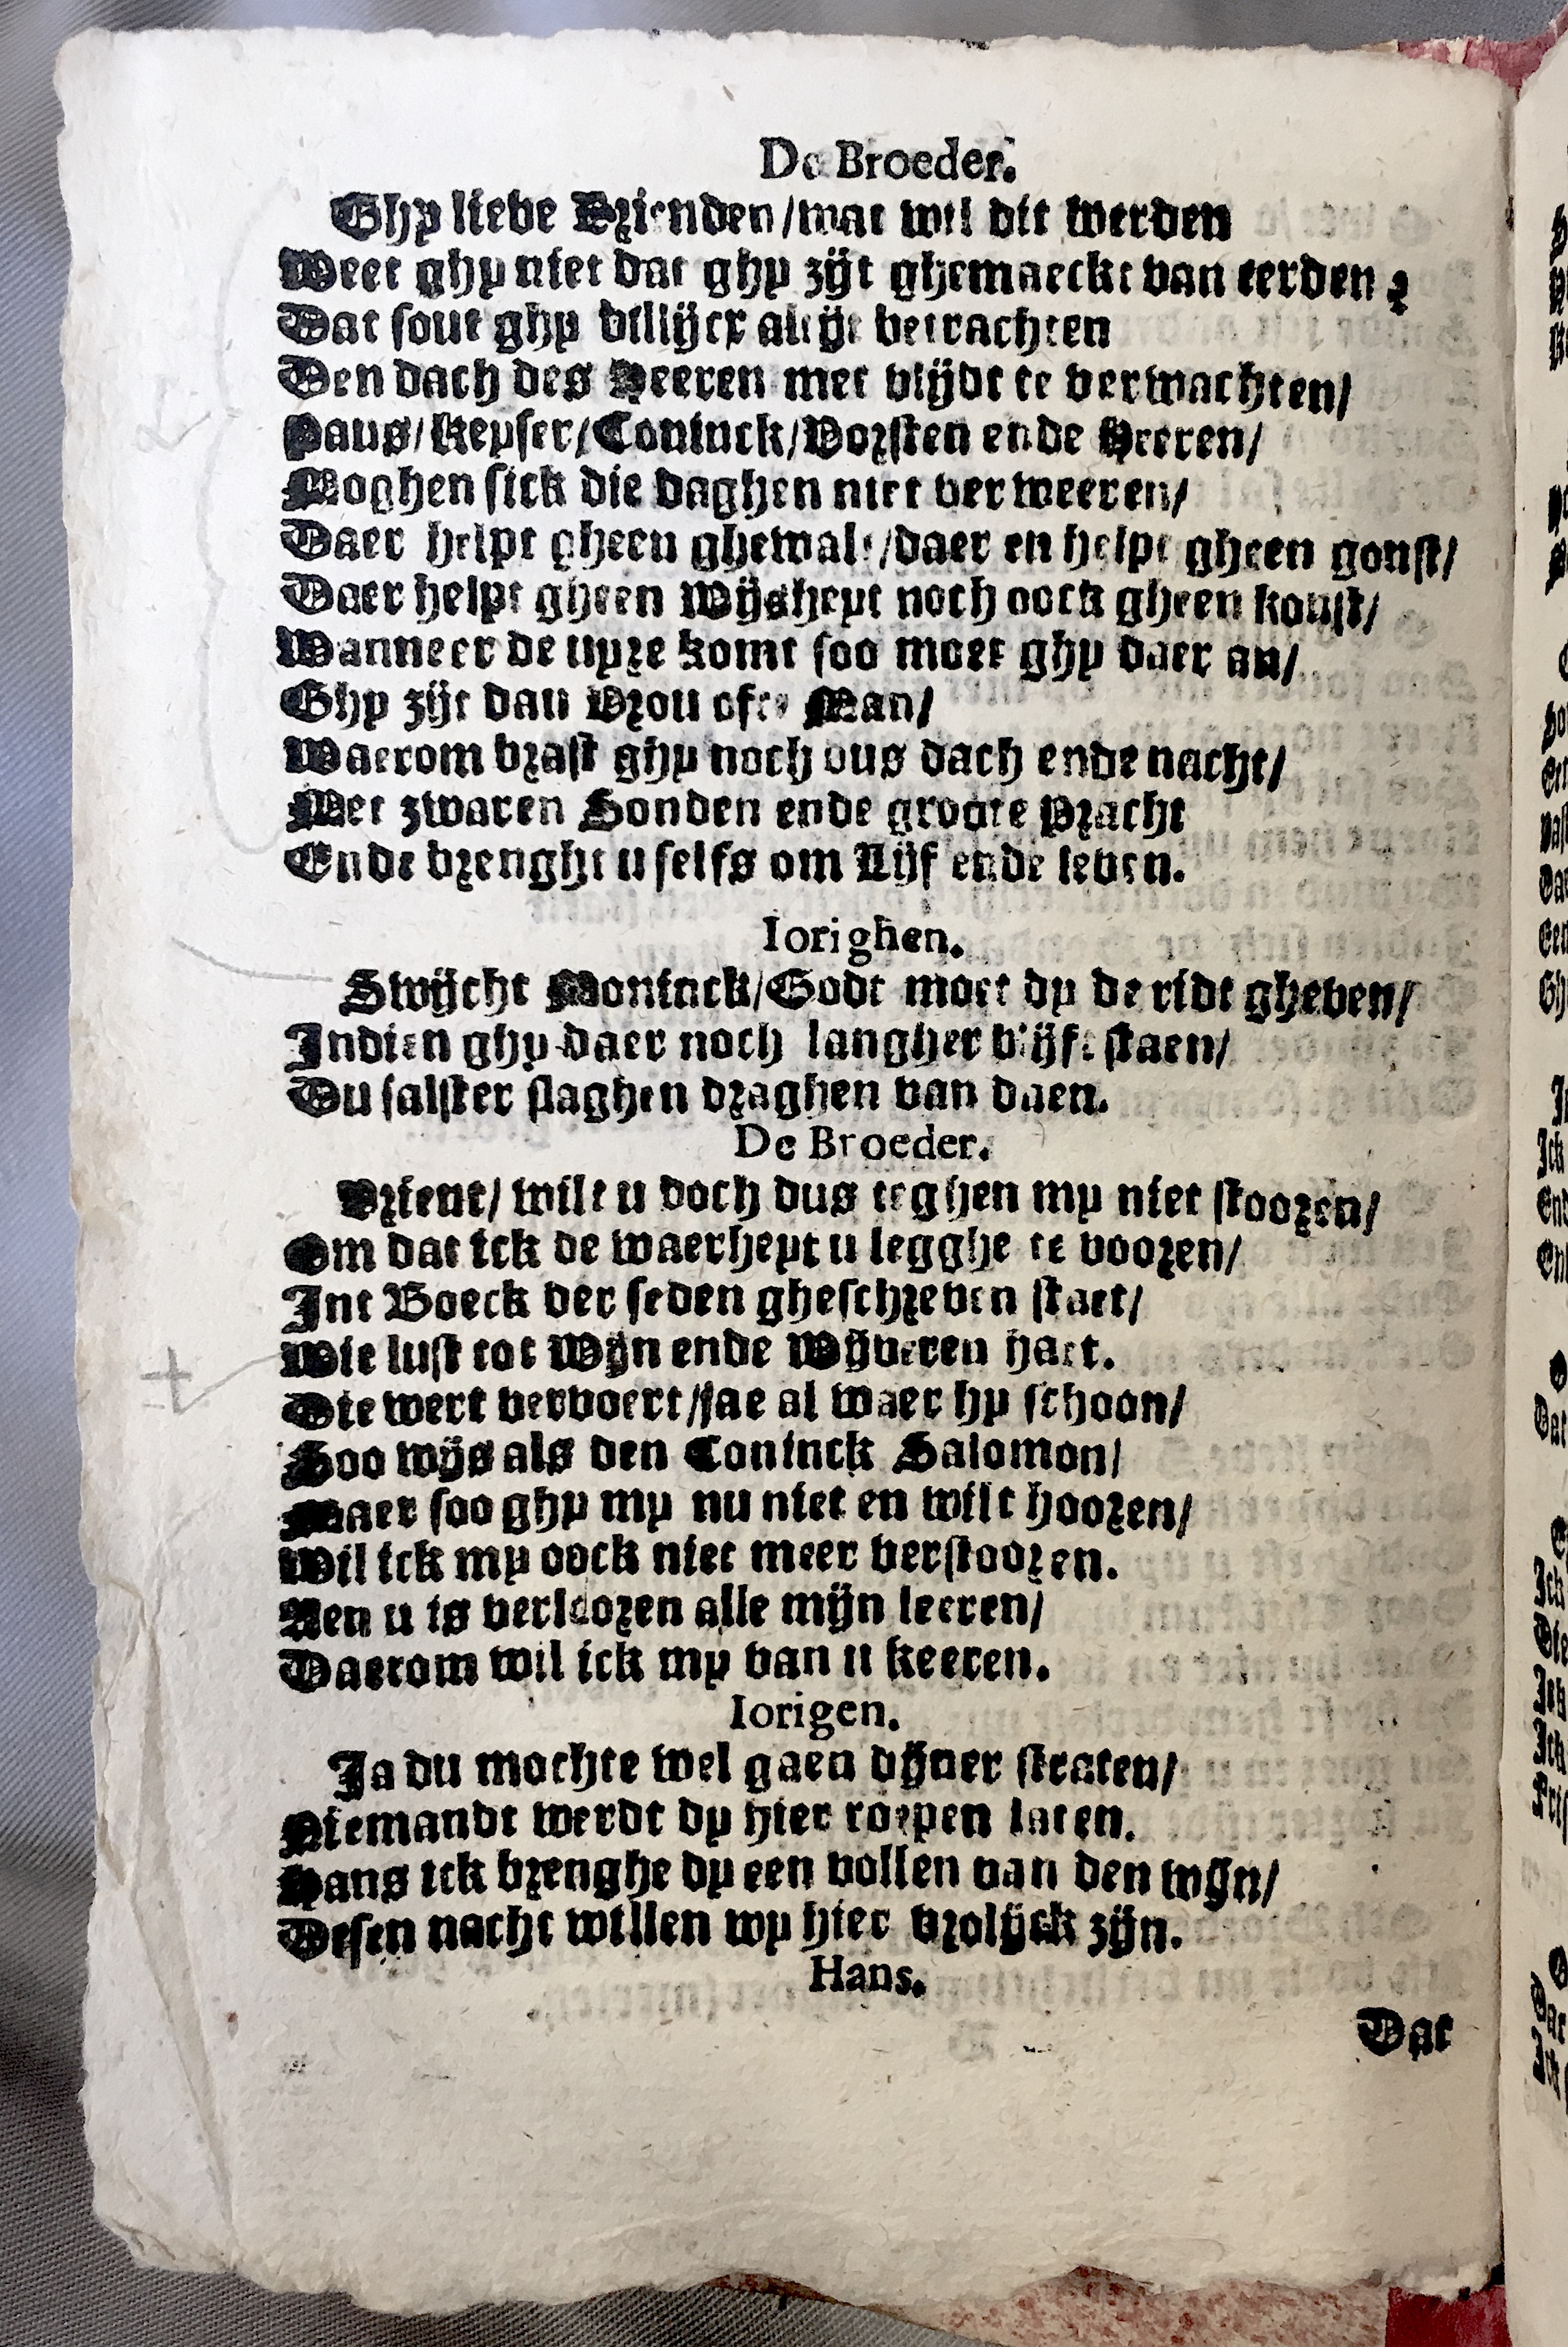 De Broeder.
Ghy lieve Vrienden/wat wil dit werden
Weet ghy niet dat ghy zijt ghemaeckt van eerden?
Dat sout ghy billijcx altijt betrachten
Den dach des Heeren met vlijdt te verwachten/
Paus/Keyser/Coninck/Vorsten ende Heeren/
Moghen sick die daghen niet verweeren/
Daer helpt gheen ghewalt/daer en helpt gheen gonst/
Daer helpt gheen Wijsheyt noch oock gheen konst/
Wanneer de uyre komt soo moet ghy daer an/
Ghy zijt dan Vrou ofte Man/
Waerom brast ghy noch dus dach ende nacht/
Met zwaren Sonden ende groote Pracht
Ende brenght u selfs om Lijf ende leven.
Iorighen.
Swijcht Moninck/Godt moet dy de ridt gheven/
Indien ghy daer noch langher blijft staen/
Du salster slaghen draghen van daen.
De Broeder.
Vrient/ wilt u doch dus teghen my niet stooren/
Om dat ick de waerheyt u legghe te vooren/
Int Boeck der seden gheschreven staet/
Wie lust tot Wijn ende Wijveren haet.
Die wert vervoert/jae al waer hy schoon/
Soo wijs als den Coninck Salomon/
Maer soo ghy my nu niet en wilt hooren/
Wil ick my oock niet meer verstooren.
Aen u is verlooren alle mijn leeren/
Daerom wil ick my van u keeren.
Iorigen.
Ja du mochte wel gaen dijner straten/
Niemandt werdt dy hier roepen laten.
Hans ick brenghe dy een vollen van den wijn/
Desen nacht willen wy hier vrolijck zijn.
Hans.
Dat